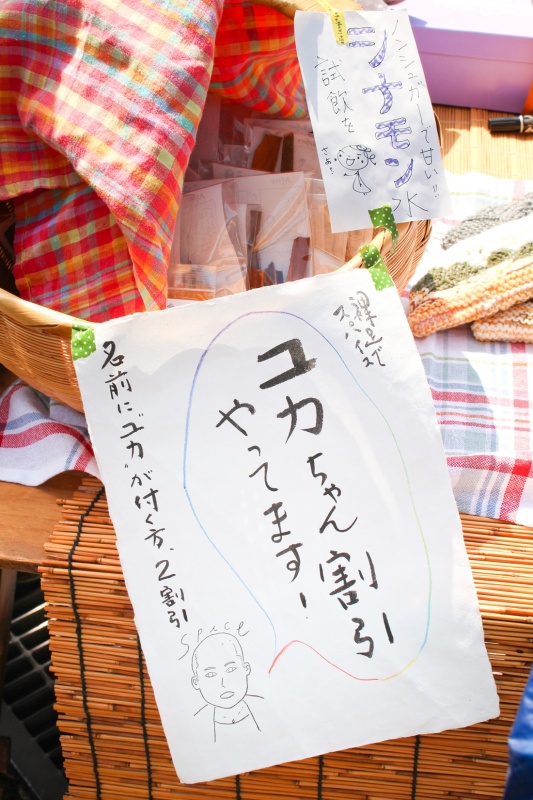 ノンシュガーで甘い!!
シナモン水
試飲を
裸足で
スパイス
ユカちゃん割引
やってます!
名前に"ユカ"が付く方、2割引
space